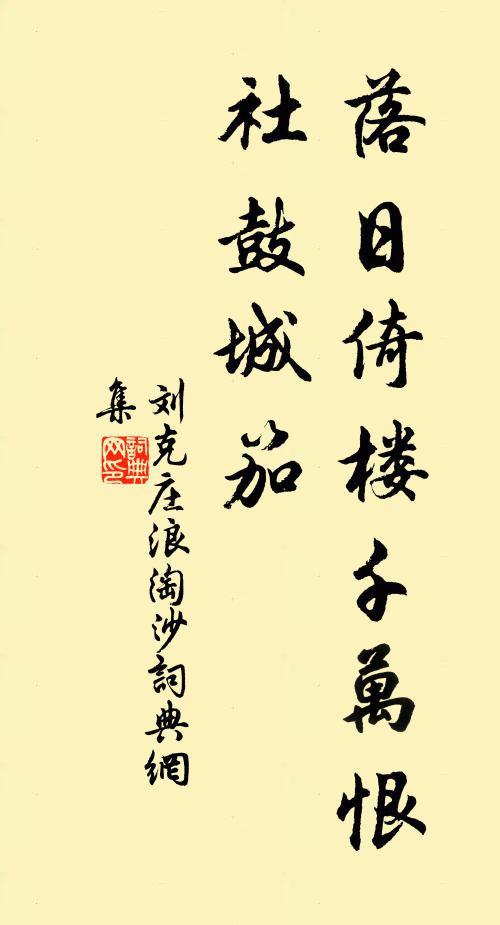 落日倚楼千萬恨
社鼓城笳
刘克庄浪淘沙詞典網
集
詞典
网印